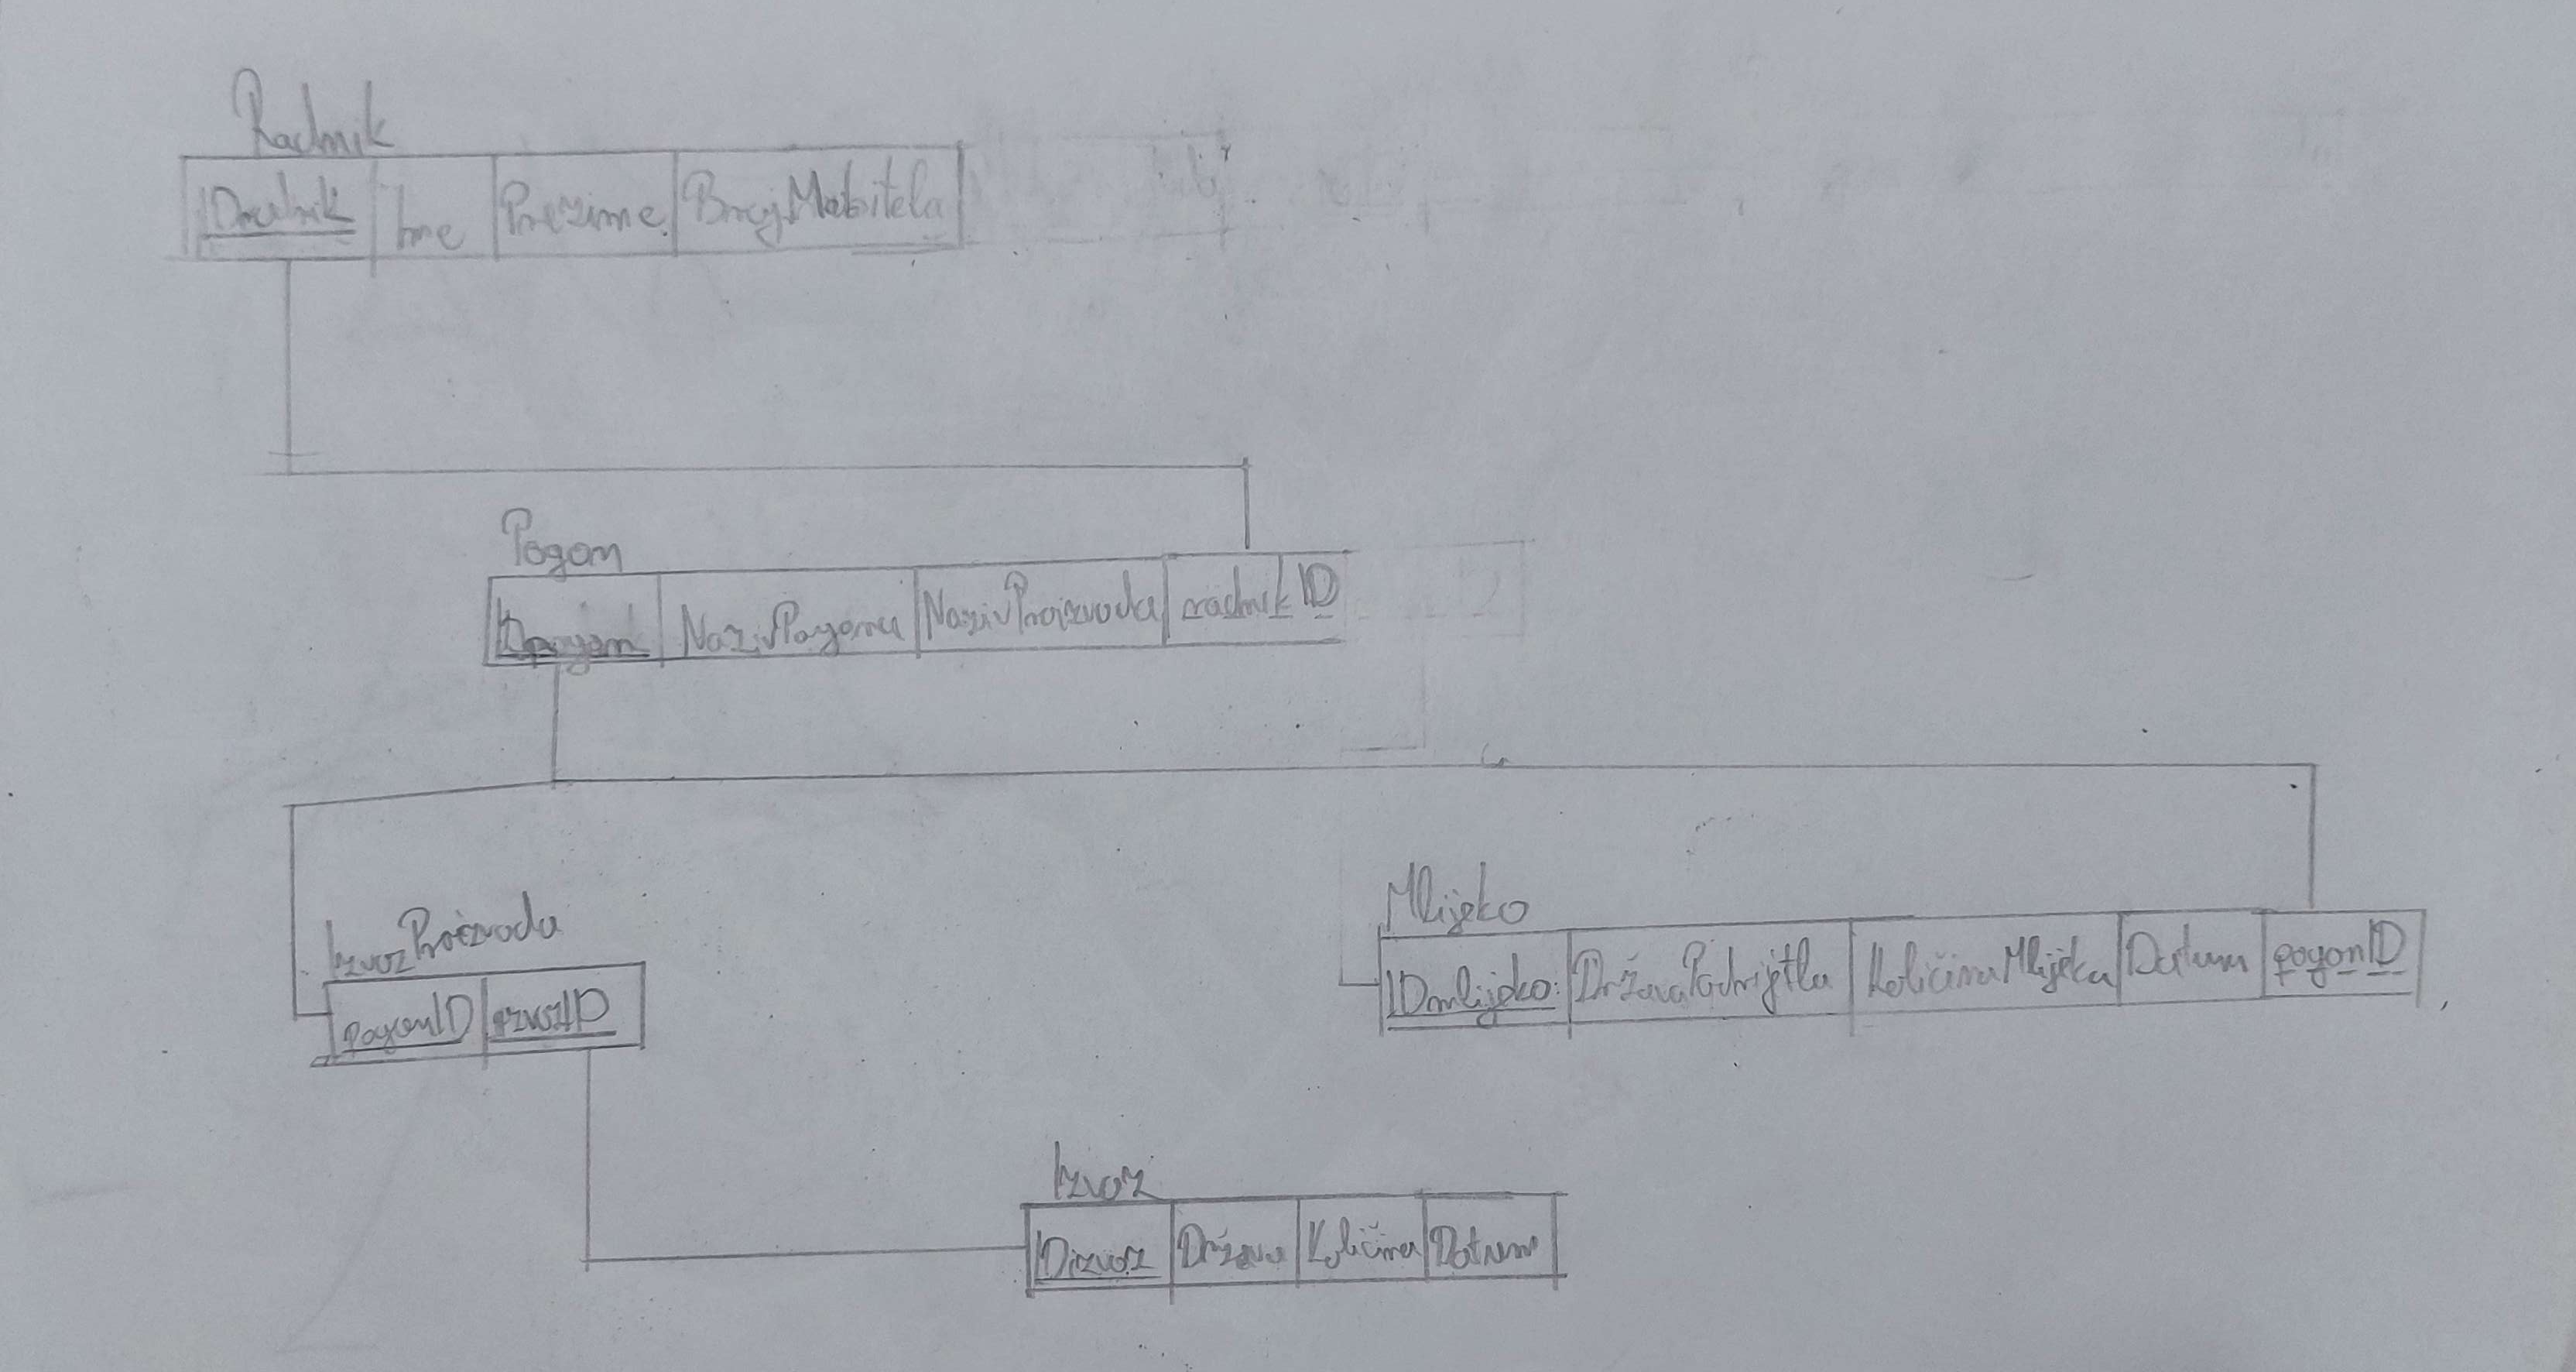 Radnik
IDradnik Ime Prezime BrojMobitela
Pogon
IDpogon NazivPogona NazivProizvoda radnikID
IzvozProizvoda
pogonID izvozID
Mlijeko
IDmlijeko DržavaPodrijetla KoličinaMlijeka Datum pogonID
Izvoz
IDizvoz Država Količina Datum